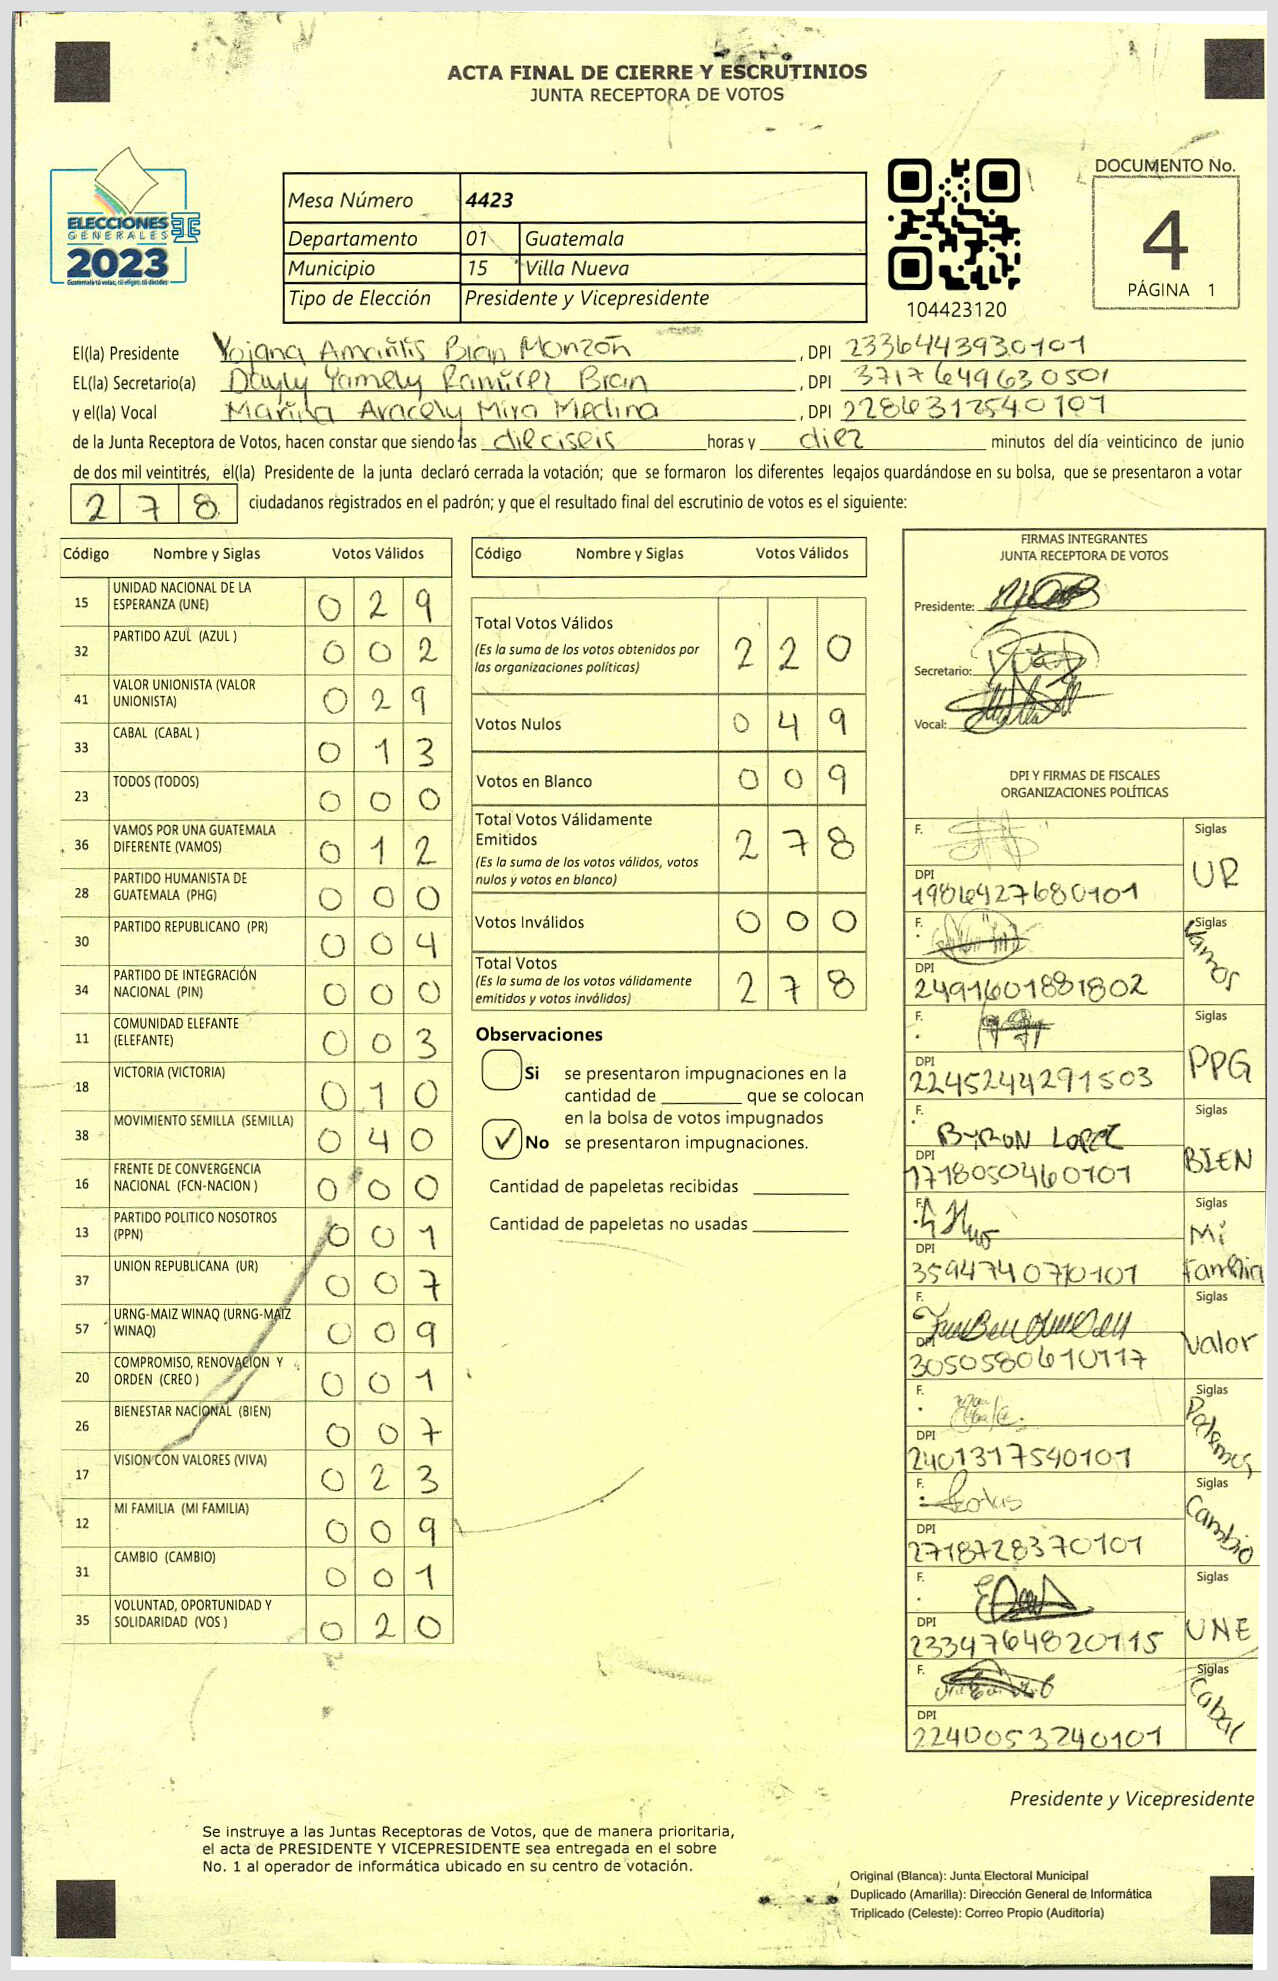 ACTA FINAL DE CIERRE Y ESCRUTINIOS
JUNTA RECEPTORA DE VOTOS
ELECCIONES
GENERALES
2023
Mesa Número 4423
Departamento 01 Guatemala
Municipio 15 Villa Nueva
Tipo de Elección Presidente y Vicepresidente
104423120
DOCUMENTO No.
4
PÁGINA 1
El(la) Presidente Yojana Bran Monzón , DPI 2336443930101
EL(la) Secretario(a) Dayly Yamely Ramírez Bran , DPI 3717649630501
y el(la) Vocal Aracely Mira Medina , DPI 2286312540101
de la Junta Receptora de Votos, hacen constar que siendo las dieciseis horas y diez minutos del día veinticinco de junio
de dos mil veintitrés, el(la) Presidente de la junta declaró cerrada la votación; que se formaron los diferentes legajos guardándose en su bolsa, que se presentaron a votar
278 ciudadanos registrados en el padrón; y que el resultado final del escrutinio de votos es el siguiente:
Código Nombre y Siglas Votos Válidos
15 UNIDAD NACIONAL DE LA ESPERANZA (UNE) 029
32 PARTIDO AZUL (AZUL ) 002
41 VALOR UNIONISTA (VALOR UNIONISTA) 029
33 CABAL (CABAL ) 013
23 TODOS (TODOS) 000
36 VAMOS POR UNA GUATEMALA DIFERENTE (VAMOS) 012
28 PARTIDO HUMANISTA DE GUATEMALA (PHG) 000
30 PARTIDO REPUBLICANO (PR) 004
34 PARTIDO DE INTEGRACIÓN NACIONAL (PIN) 000
11 COMUNIDAD ELEFANTE (ELEFANTE) 003
18 VICTORIA (VICTORIA) 010
38 MOVIMIENTO SEMILLA (SEMILLA) 040
16 FRENTE DE CONVERGENCIA NACIONAL (FCN-NACION ) 000
13 PARTIDO POLITICO NOSOTROS (PPN) 001
37 UNION REPUBLICANA (UR) 007
57 URNG-MAIZ WINAQ (URNG-MAIZ WINAQ) 009
20 COMPROMISO, RENOVACION Y ORDEN (CREO ) 001
26 BIENESTAR NACIONAL (BIEN) 007
17 VISION CON VALORES (VIVA) 023
12 MI FAMILIA (MI FAMILIA) 009
31 CAMBIO (CAMBIO) 001
35 VOLUNTAD, OPORTUNIDAD Y SOLIDARIDAD (VOS ) 020
Código Nombre y Siglas Votos Válidos
Total Votos Válidos 220
(Es la suma de los votos obtenidos por
las organizaciones políticas)
Votos Nulos 049
Votos en Blanco 009
Total Votos Válidamente
Emitidos 278
(Es la suma de los votos válidos, votos
nulos y votos en blanco)
Votos Inválidos 000
Total Votos 278
(Es la suma de los votos válidamente
emitidos y votos inválidos)
Observaciones
Si se presentaron impugnaciones en la
cantidad de ________ que se colocan
en la bolsa de votos impugnados
✓ No se presentaron impugnaciones.
Cantidad de papeletas recibidas
Cantidad de papeletas no usadas
FIRMAS INTEGRANTES
JUNTA RECEPTORA DE VOTOS
Presidente:
Secretario:
Vocal:
DPI Y FIRMAS DE FISCALES
ORGANIZACIONES POLÍTICAS
F. Siglas UR
DPI 1986427680101
F. Siglas Vamos
DPI 2491601881802
F. Siglas PPG
DPI 2245244291503
F. BYRON LOPEZ Siglas BIEN
DPI 1718050460101
F. Siglas Mi Familia
DPI 3594740710101
F. Siglas Valor
DPI 3050580610117
F. Siglas
DPI 2401317540101
F. Siglas Cambio
DPI 2718728370101
F. Siglas UNE
DPI 2334764820115
F. Siglas Cabal
DPI 2240053240101
Presidente y Vicepresidente
Se instruye a las Juntas Receptoras de Votos, que de manera prioritaria,
el acta de PRESIDENTE Y VICEPRESIDENTE sea entregada en el sobre
No. 1 al operador de informática ubicado en su centro de votación.
Original (Blanca): Junta Electoral Municipal
Duplicado (Amarilla): Dirección General de Informática
Triplicado (Celeste): Correo Propio (Auditoría)